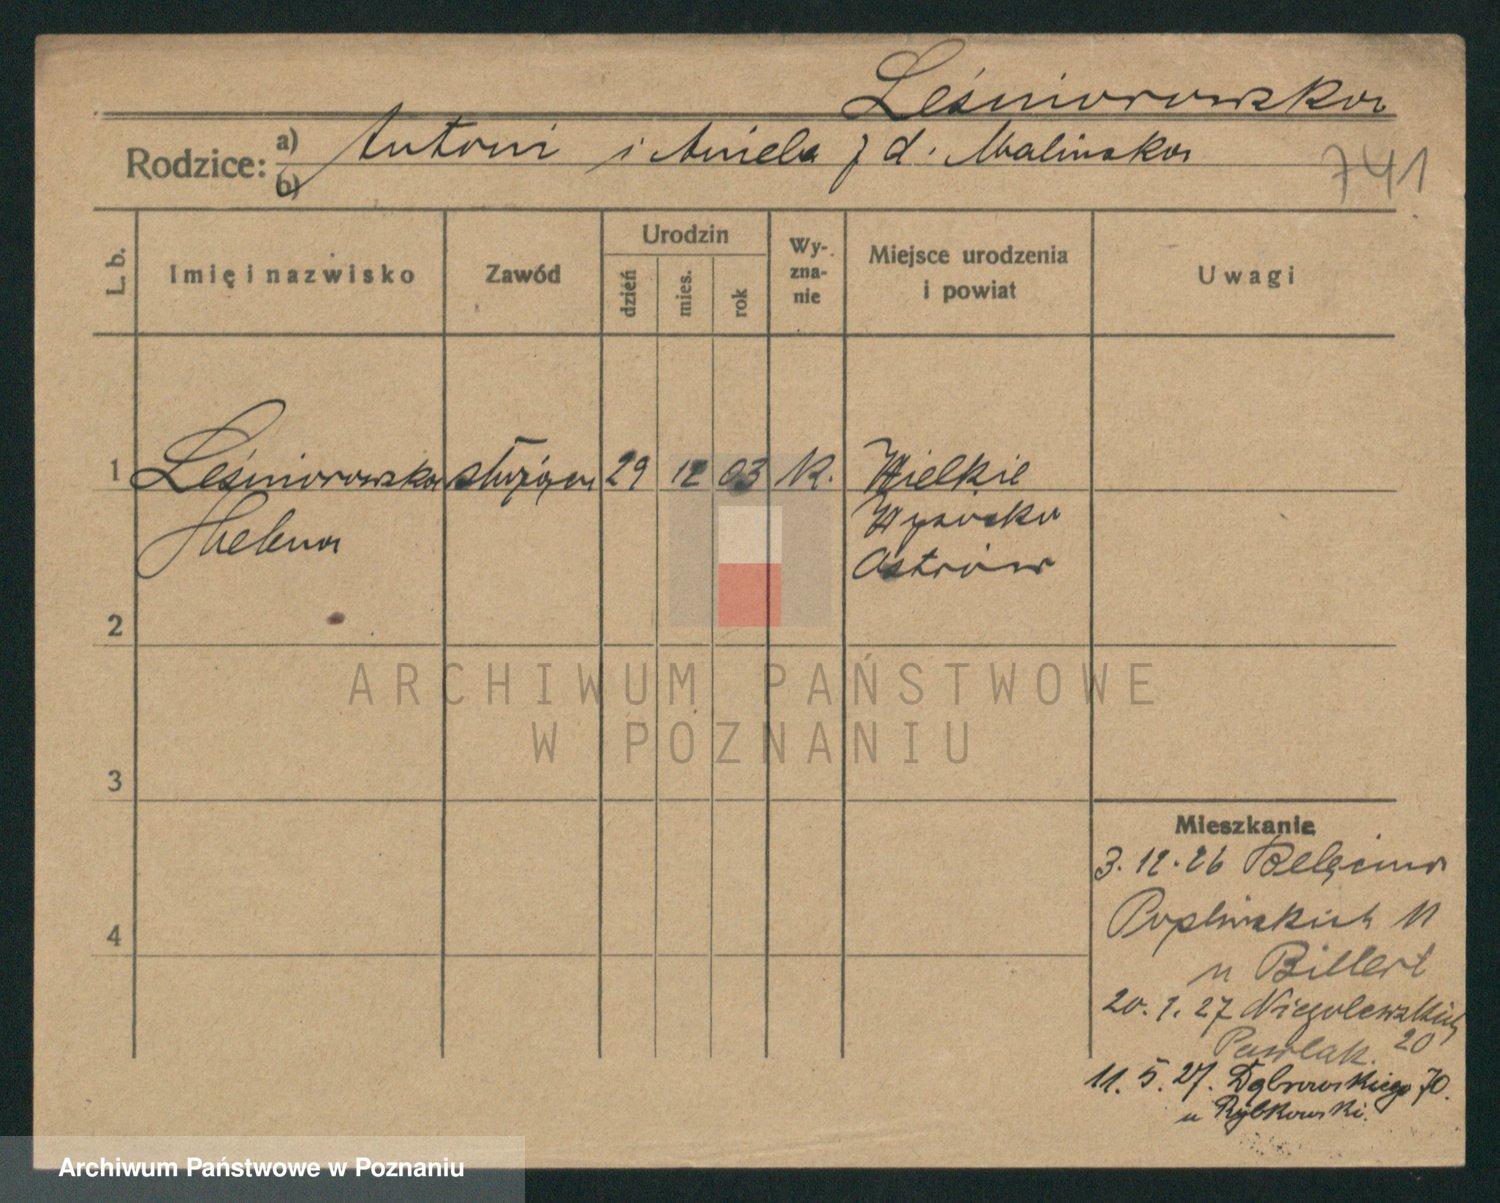 Leśniorowska
Rodzice: a) Antoni i Aniela z d. Malińska
b)
741
L. b.
Imię i nazwisko
Zawód
Urodzin
dzień
mies.
rok
Wy-
zna-
nie
Miejsce urodzenia
i powiat
Uwagi
1 Leśniorowska służąca 29 12 03 K. Wielkie
Helena Wysocko
Ostrów
2
3
4
ARCHIWUM PAŃSTWOWE
W POZNANIU
Mieszkanie
3.12.26 Belęcina
Poplińskich 11
u Billert
20.1.27 Niegolewskich
Pawlak. 20
11.5.27. Dąbrowskiego 70.
u Rybkowski.
Archiwum Państwowe w Poznaniu